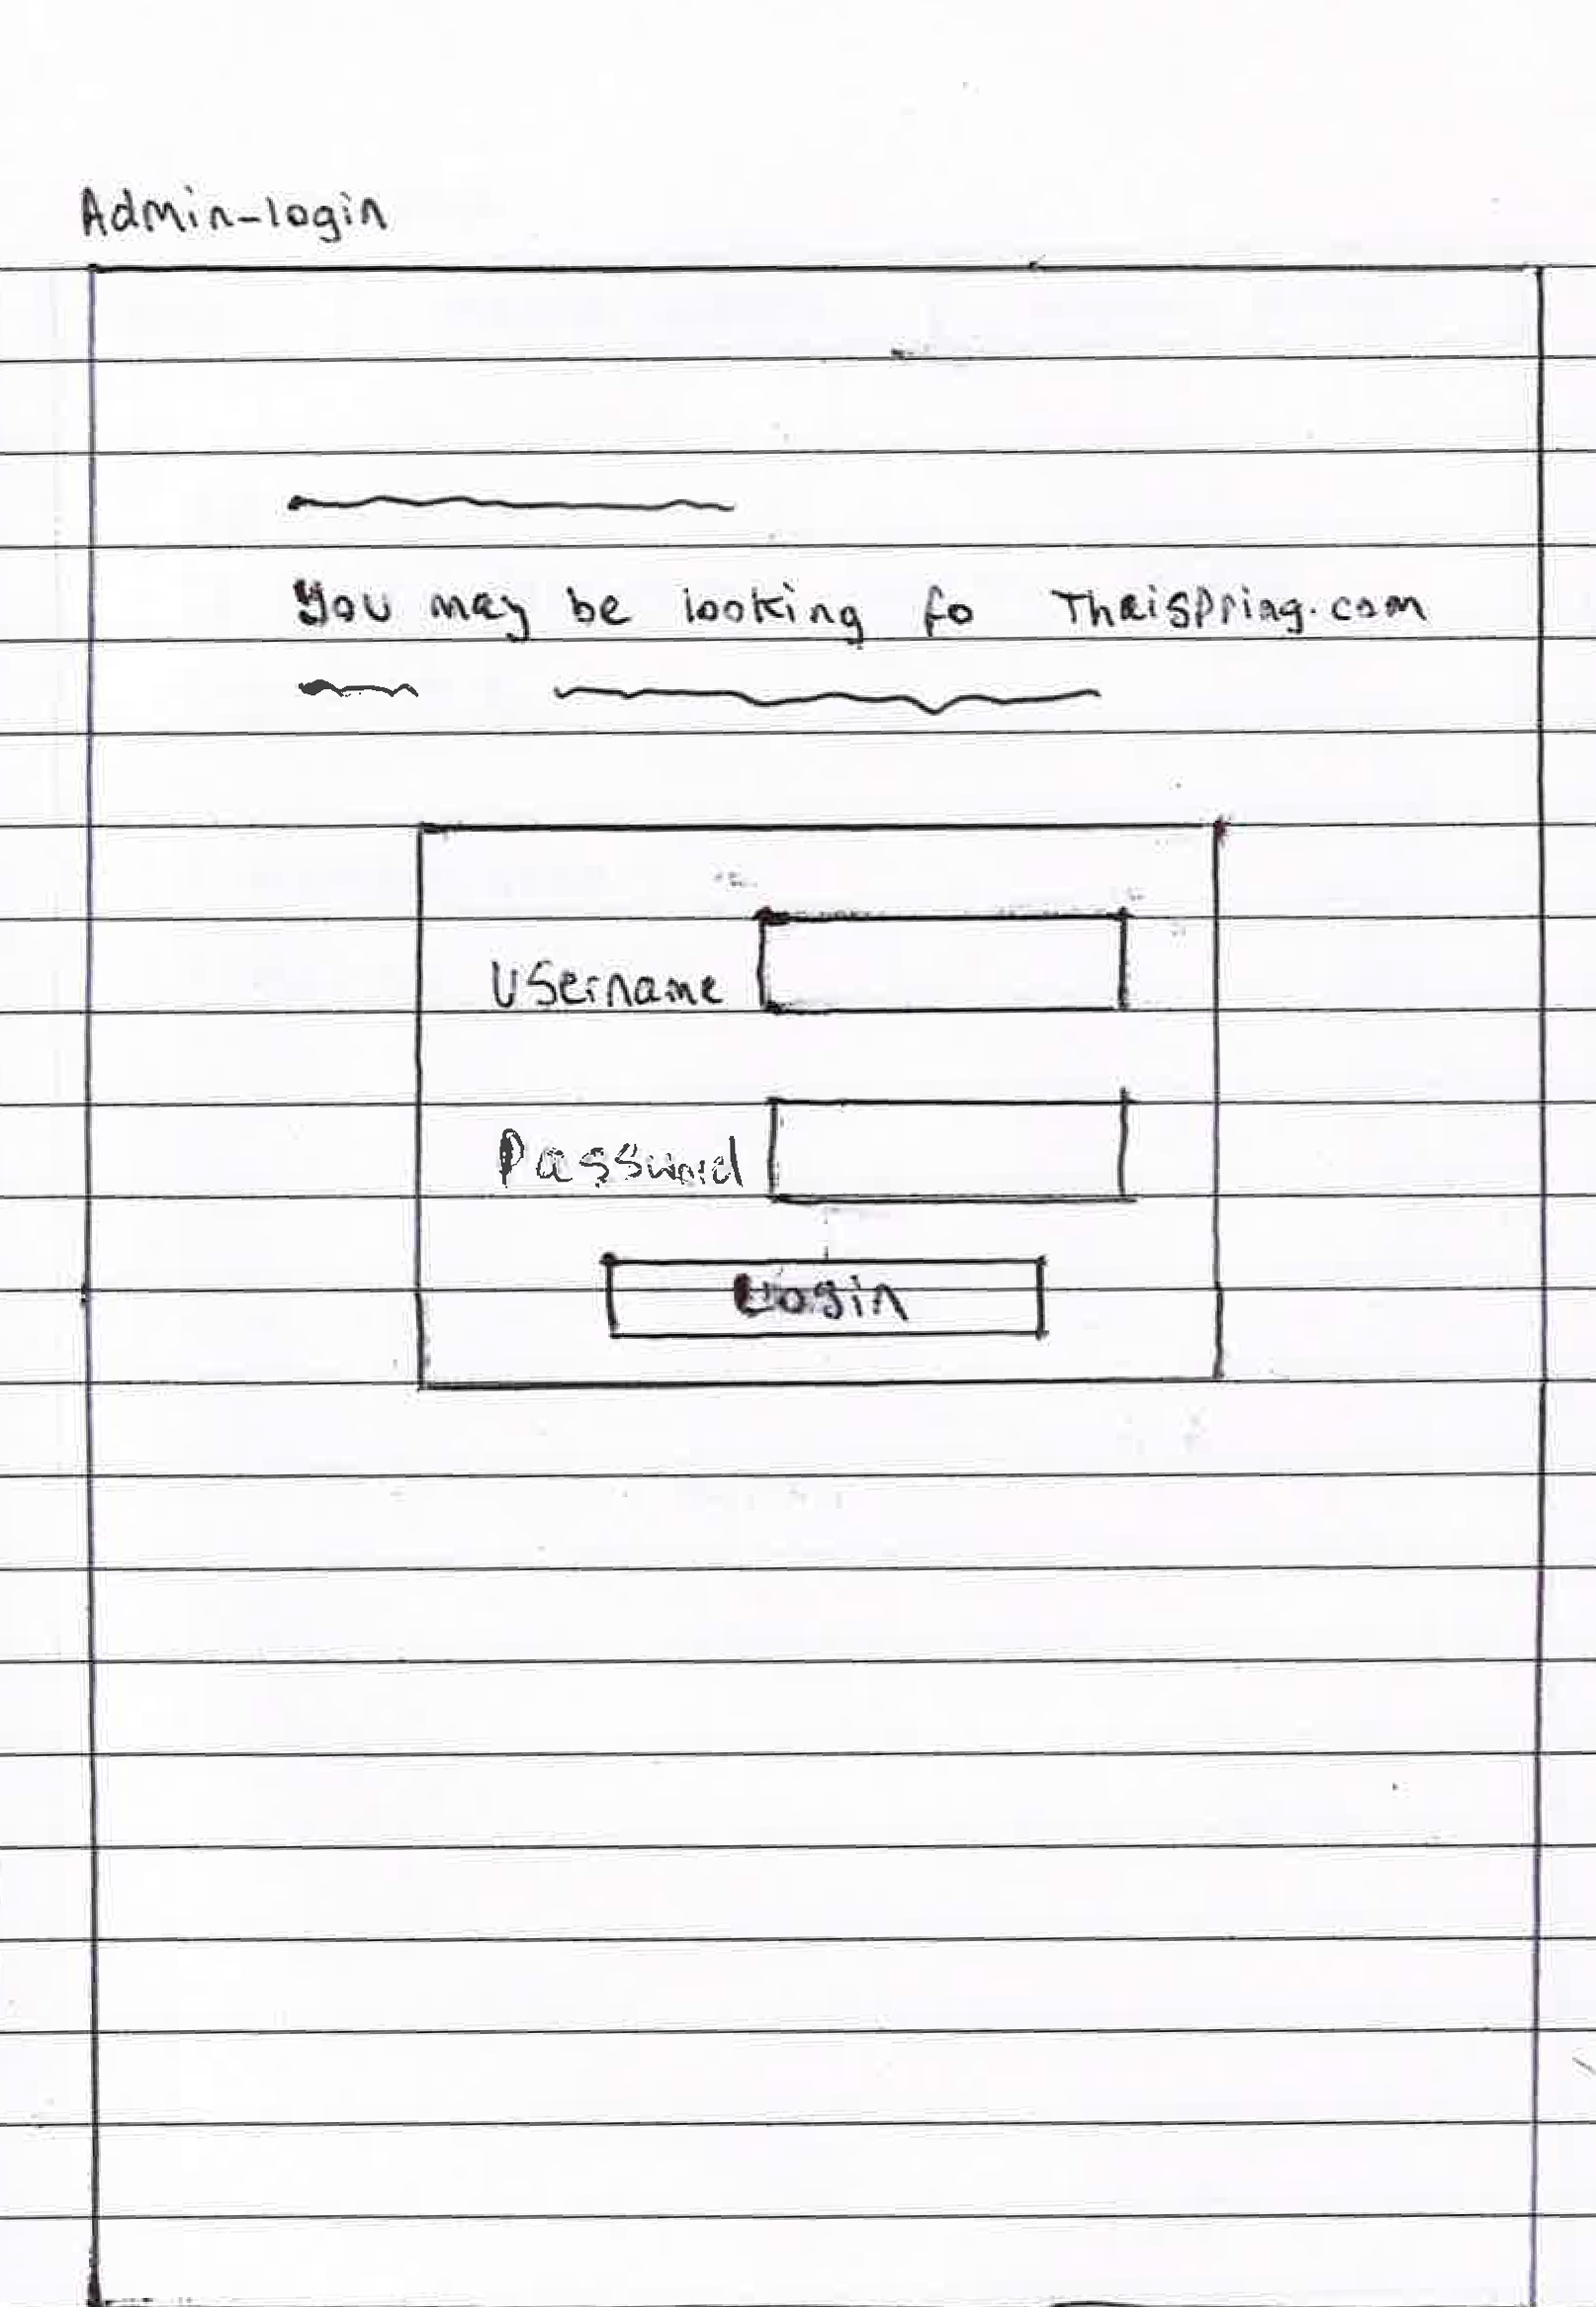 Admin-login
You may be looking fo Thaispring.com
Username
Password
Login